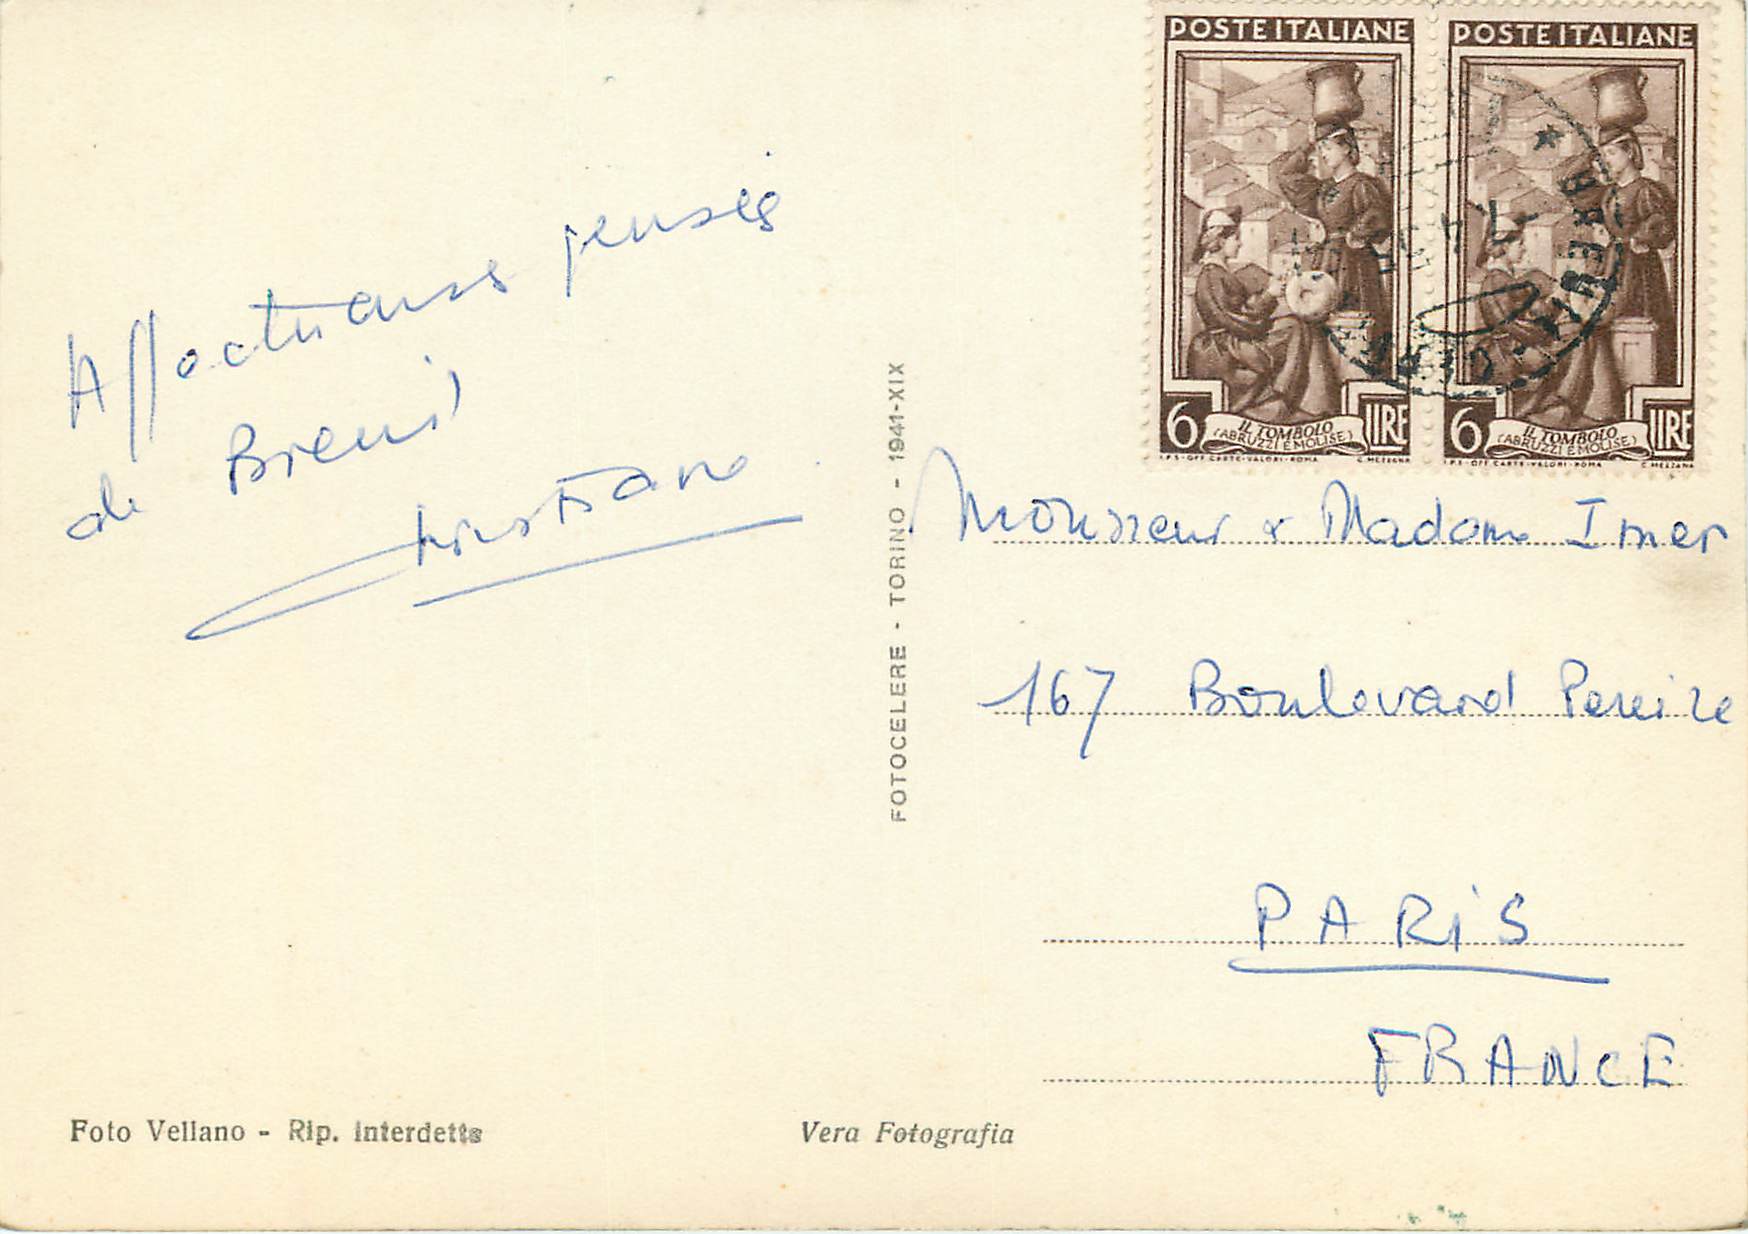 Affectueuses pensées
de Breuil
Christiane
FOTOCELERE - TORINO - 1941-XIX
POSTE ITALIANE
6 LIRE
IL TOMBOLO
(ABRUZZI E MOLISE)
I.P.S - OFF. CARTE-VALORI - ROMA C. MEZZANA
POSTE ITALIANE
6 LIRE
IL TOMBOLO
(ABRUZZI E MOLISE)
I.P.S - OFF. CARTE-VALORI - ROMA C. MEZZANA
BREUIL
Monsieur & Madame Imer
167 Boulevard Pereire
PARIS
FRANCE
Foto Vellano - Rip. interdetta
Vera Fotografia